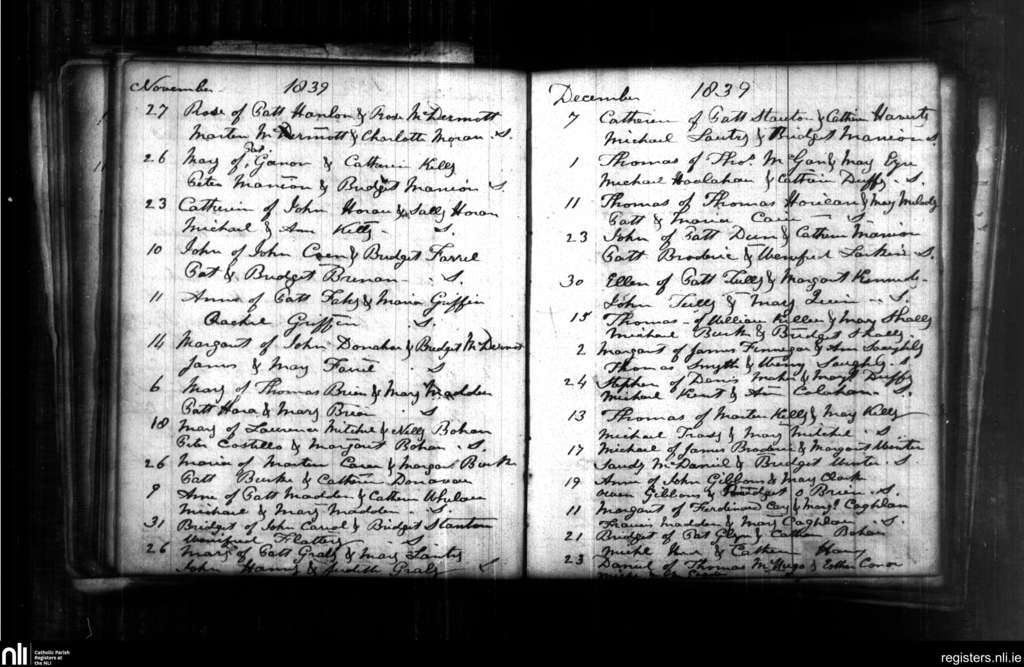 November 1839
27 Rose of Patt Hanlon & Rose McDermott
Marten McDermott & Charlotte Moran S.
26 Mary of Jas Ganor & Catherin Kelly
Peter Manion & Bridget Manion S.
23 Catherin of John Horan & Sally Horan
Michael & Ann Kelly S.
10 John of John Coen & Bridget Farrel
Pat & Bridget Brenan S.
11 Anne of Patt Fahy & Maria Griffin
Rachel Griffin S.
14 Margaret of John Donahoe & Bridget McDermot
James & May Farrel S
6 Mary of Thomas Brien & Mary Madden
Patt Hara & Mary Brien S
18 Mary of Laurence Mitchel & Nelly Bohan
Peter Costello & Margaret Bohan S.
26 Maria of Marten Caran & Margaret Burk
Patt Burke & Catherin Donavan
9 Anne of Patt Madden & Cathern Whelan
Michael & Mary Madden S.
31 Bridget of John Carrol & Bridget Stanton
Wenifred Flattery S
26 Mary of Patt Graly & Mary Lantry
John Hanny & Judith Graly S
December 1839
7 Catherin of Patt Staunton & Cathrin
Michael Lantry & Bridget Manion S.
1 Thomas of Thos. McGan & May Egan
Michael Hoolahan & Cathrin Duffy S.
11 Thomas of Thomas & May Melody
Patt & Maria Cain S
23 John of Patt Dunn & Cathern Manion
Patt Broderic & Wenefred Larkin S.
30 Ellen of Patt Tully & Margaret Kennedy
John Tully & Mary Quin S.
15 Thomas of William Killen & Mary Skally
Michael Burke & Bridget Skally
2 Margaret of James Finnegan & Ann
Thomas Smyth & S.
24 Stephen of Denis & Margt Duffy
Michael Kent & Ann Colahan S.
13 Thomas of Marten Kelly & May Kelly
Michael Tracy & Mary Mitchel S.
17 Michael of James Broderic & Margaret Winter
Sandy McDaniel & Bridget Winter S
19 Anne of John Gibbons & Mary Clark
Owen Gibbons & Bridget O Brien S.
11 Margaret of Ferdinand & Margt Coghlan
Francis Madden & Mary Coghlan S.
21 Bridget of Pat Glynn & Cathern Bohan
Michl & Cathern Hany
23 Daniel of Thomas McHugo & Esther Conor
nli
Catholic Parish
Registers at
the NLI
registers.nli.ie